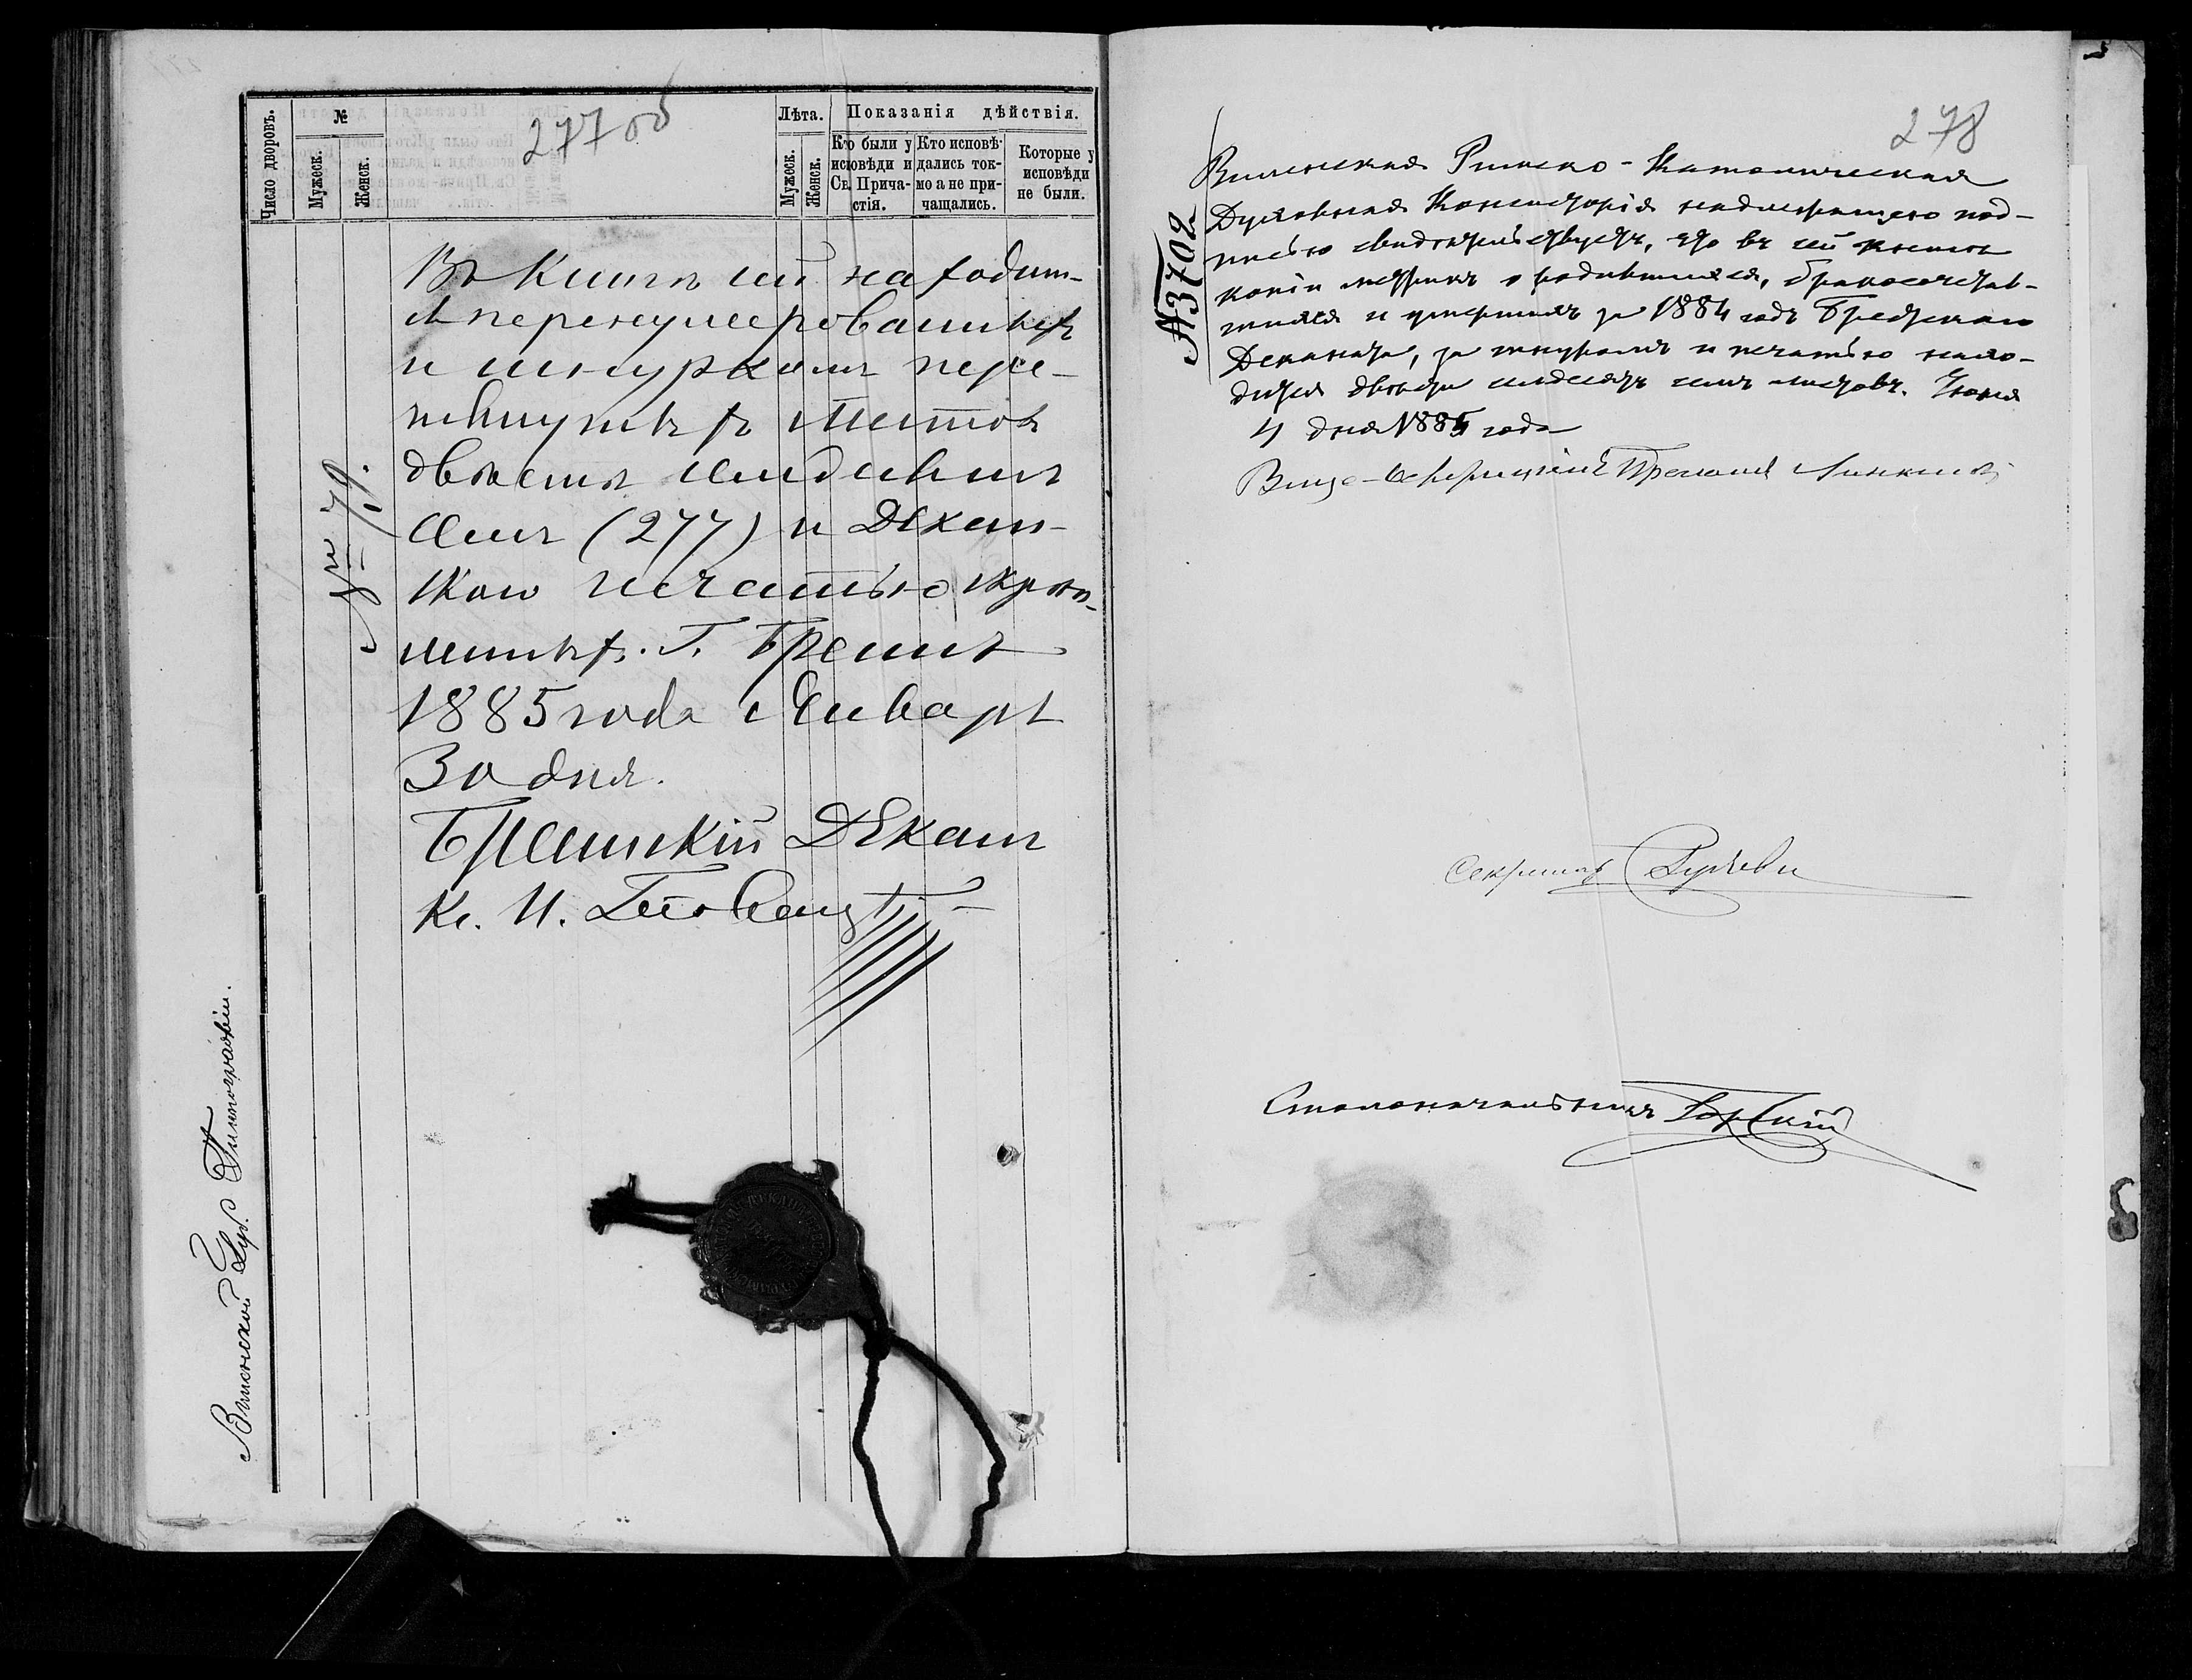 277 об
Число дворовъ.
№
Мужеск.
Женск.
Лѣта.
Мужеск.
Женск.
Показанія дѣйствія.
Кто были у исповѣди и Св. Прича-стія.
Кто исповѣ-дались ток-мо а не при-чащались.
Которые у исповѣди не были.
Въ Книгѣ сей находит-
ся перенумерованныхъ
и шнуркомъ пере-
тянутыхъ листовъ
двѣсти семдесятъ
семь (277) и Декан-
скою печатью скрѣп-
ленныхъ. Г. Брестъ
1885 года Января
30 дня.
Брестскій Деканъ
Кс. И.
№ 79.
Виленской Губ. Типографіи.
278
№ 3702
Виленская Римско-Католическая
Духовная Консисторія надлежащею под-
писью свидѣтельствуетъ, что въ сей книгѣ
копіи метрикъ о родившихся, бракосочетав-
шихся и умершихъ за 1884 годъ Брестскаго
Деканата, за шнуромъ и печатью нахо-
дится двѣсти семдесятъ семь листовъ. Іюня
4 дня 1885 года
Секретарь
Столоначальникъ